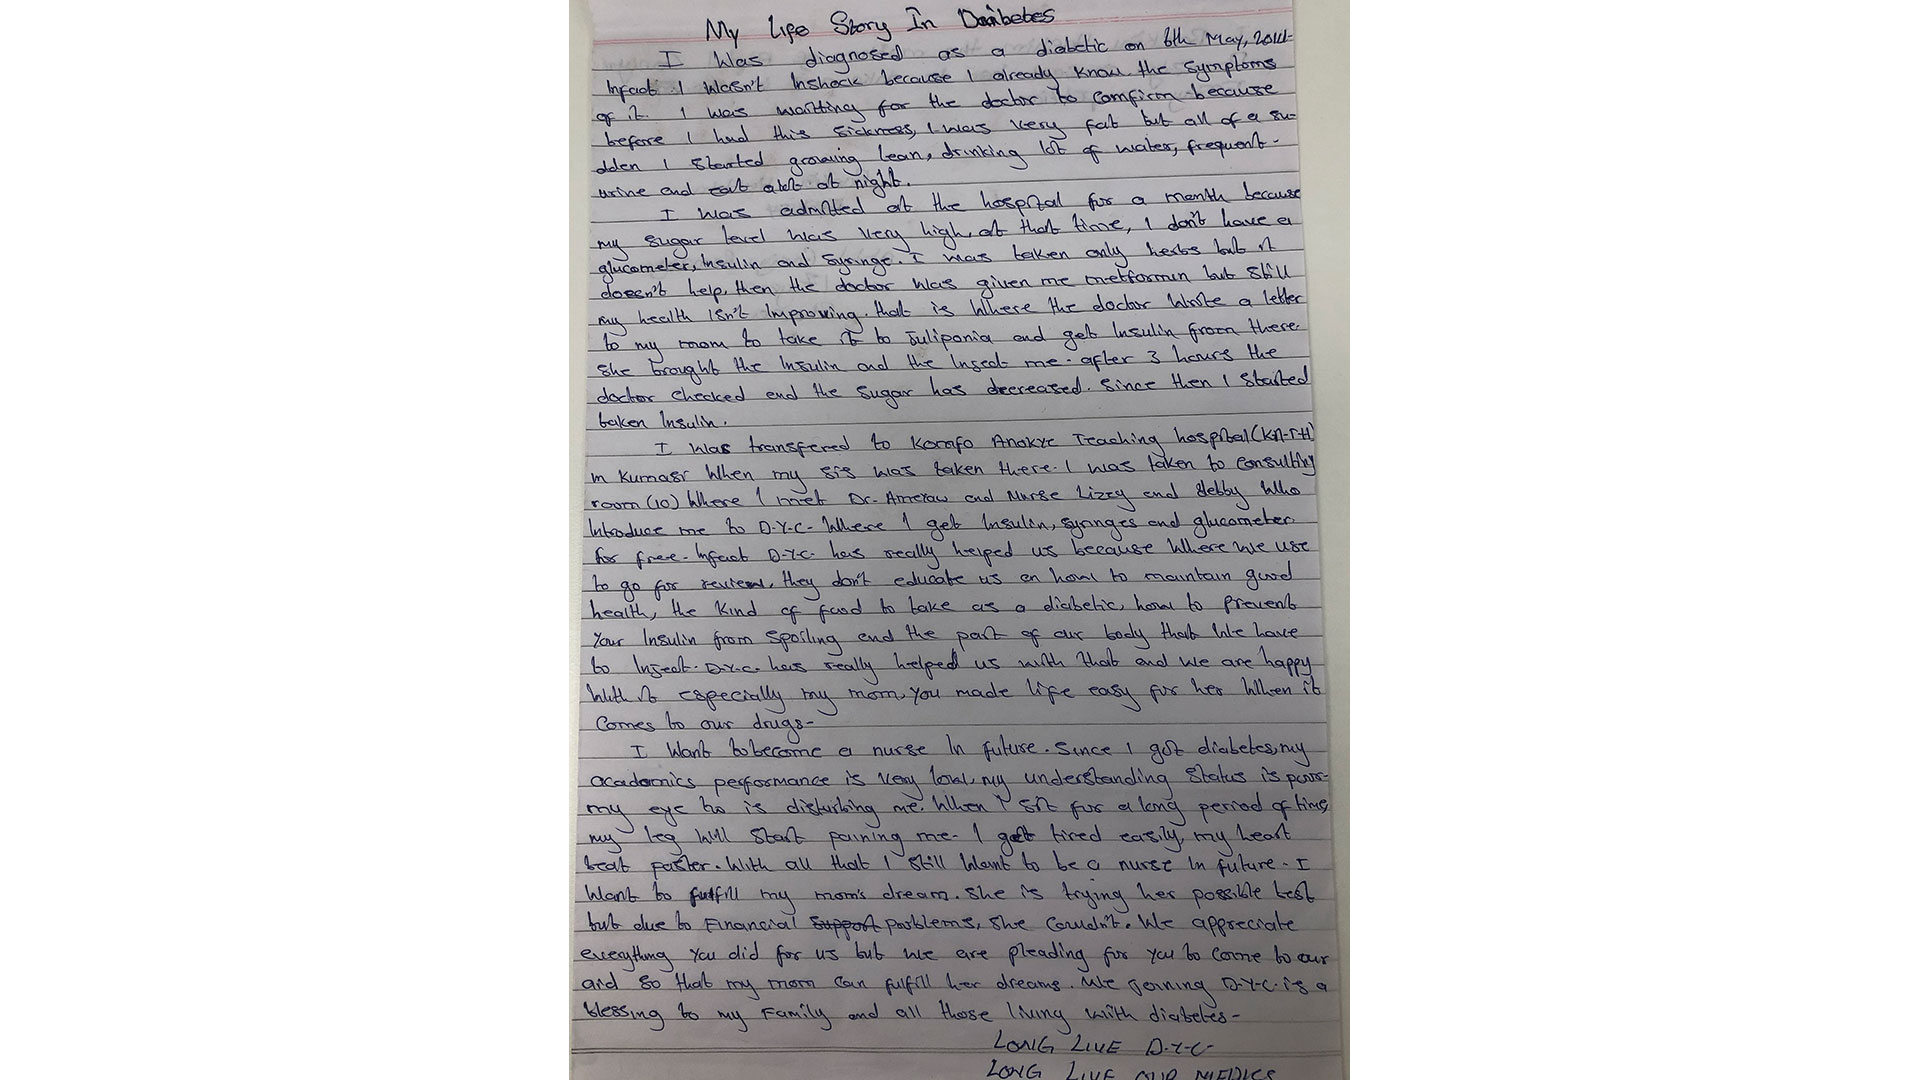 My Life Story In Daibetes
I Was diagnosed as a diabetic on 6th May,
Infact I Wasn't Inshock because I already know the symptoms
of it. I was waitting for the doctor to comfirm because
before I had this sickness, I was very fat but all of a su-
dden I started growing lean, drinking lot of water, frequent-
urine and eat alot at night.
I was admitted at the hospital for a month because
my sugar level was very high, at that time, I don't have a
glucometer, Insulin and Syringe. I was taken only herbs but it
doesn't help, then the doctor was given me metformin but still
my health isn't Improving. that is Where the doctor Wrote a letter
to my mom to take it to and get Insulin from there.
She brought the Insulin and the Insect me. after 3 hours the
doctor checked and the sugar has decreased. Since then I started
taken Insulin.
I was transfered to Komfo Anokye Teaching hospital (KATH)
in Kumasi When my sis was taken there. I was taken to consulting
room (10) Where I met Dr. and Nurse Lizzy and debby Who
Introduce me to D.Y.C. Where I get Insulin, syringes and glucometer
for free. Infact D.Y.C. has really helped us because Where we use
to go for review, they don't educate us on how to maintain good
health, the kind of food to take as a diabetic, how to prevent
Your Insulin from spoiling and the part of our body that We have
to Insect. D.Y.C. has really helped us with that and we are happy
With it especially my mom, you made life easy for her When it
comes to our drugs-
I Want tobecome a nurse In future. Since I got diabetes, my
academics performance is very low, my understanding status is poor-
my eye to is disturbing me. When I sit for a long period of time,
my leg Will start paining me. I get tired easily, my heart
beat faster. With all that I still Want to be a nurse In future. I
Want to fulfill my mom's dream. She is trying her possible best
but due to Financial support problems, she Couldn't. We appreciate
everything You did for us but we are pleading for you to come to our
aid so that my mom can fulfill her dreams. We Joining D.Y.C. is a
blessing to my Family and all those living with diabetes-
LONG LIVE D.Y.C-
LONG LIVE OUR MEDICS